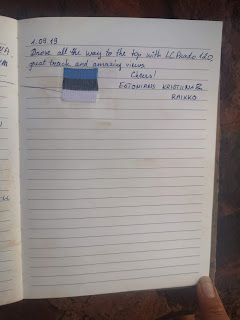 1.09.19
Drove all the way to the top with LC Prado 120
great track and amazing views
Cheers!
ESTONIANS KRISTIINA &
RAIKKO